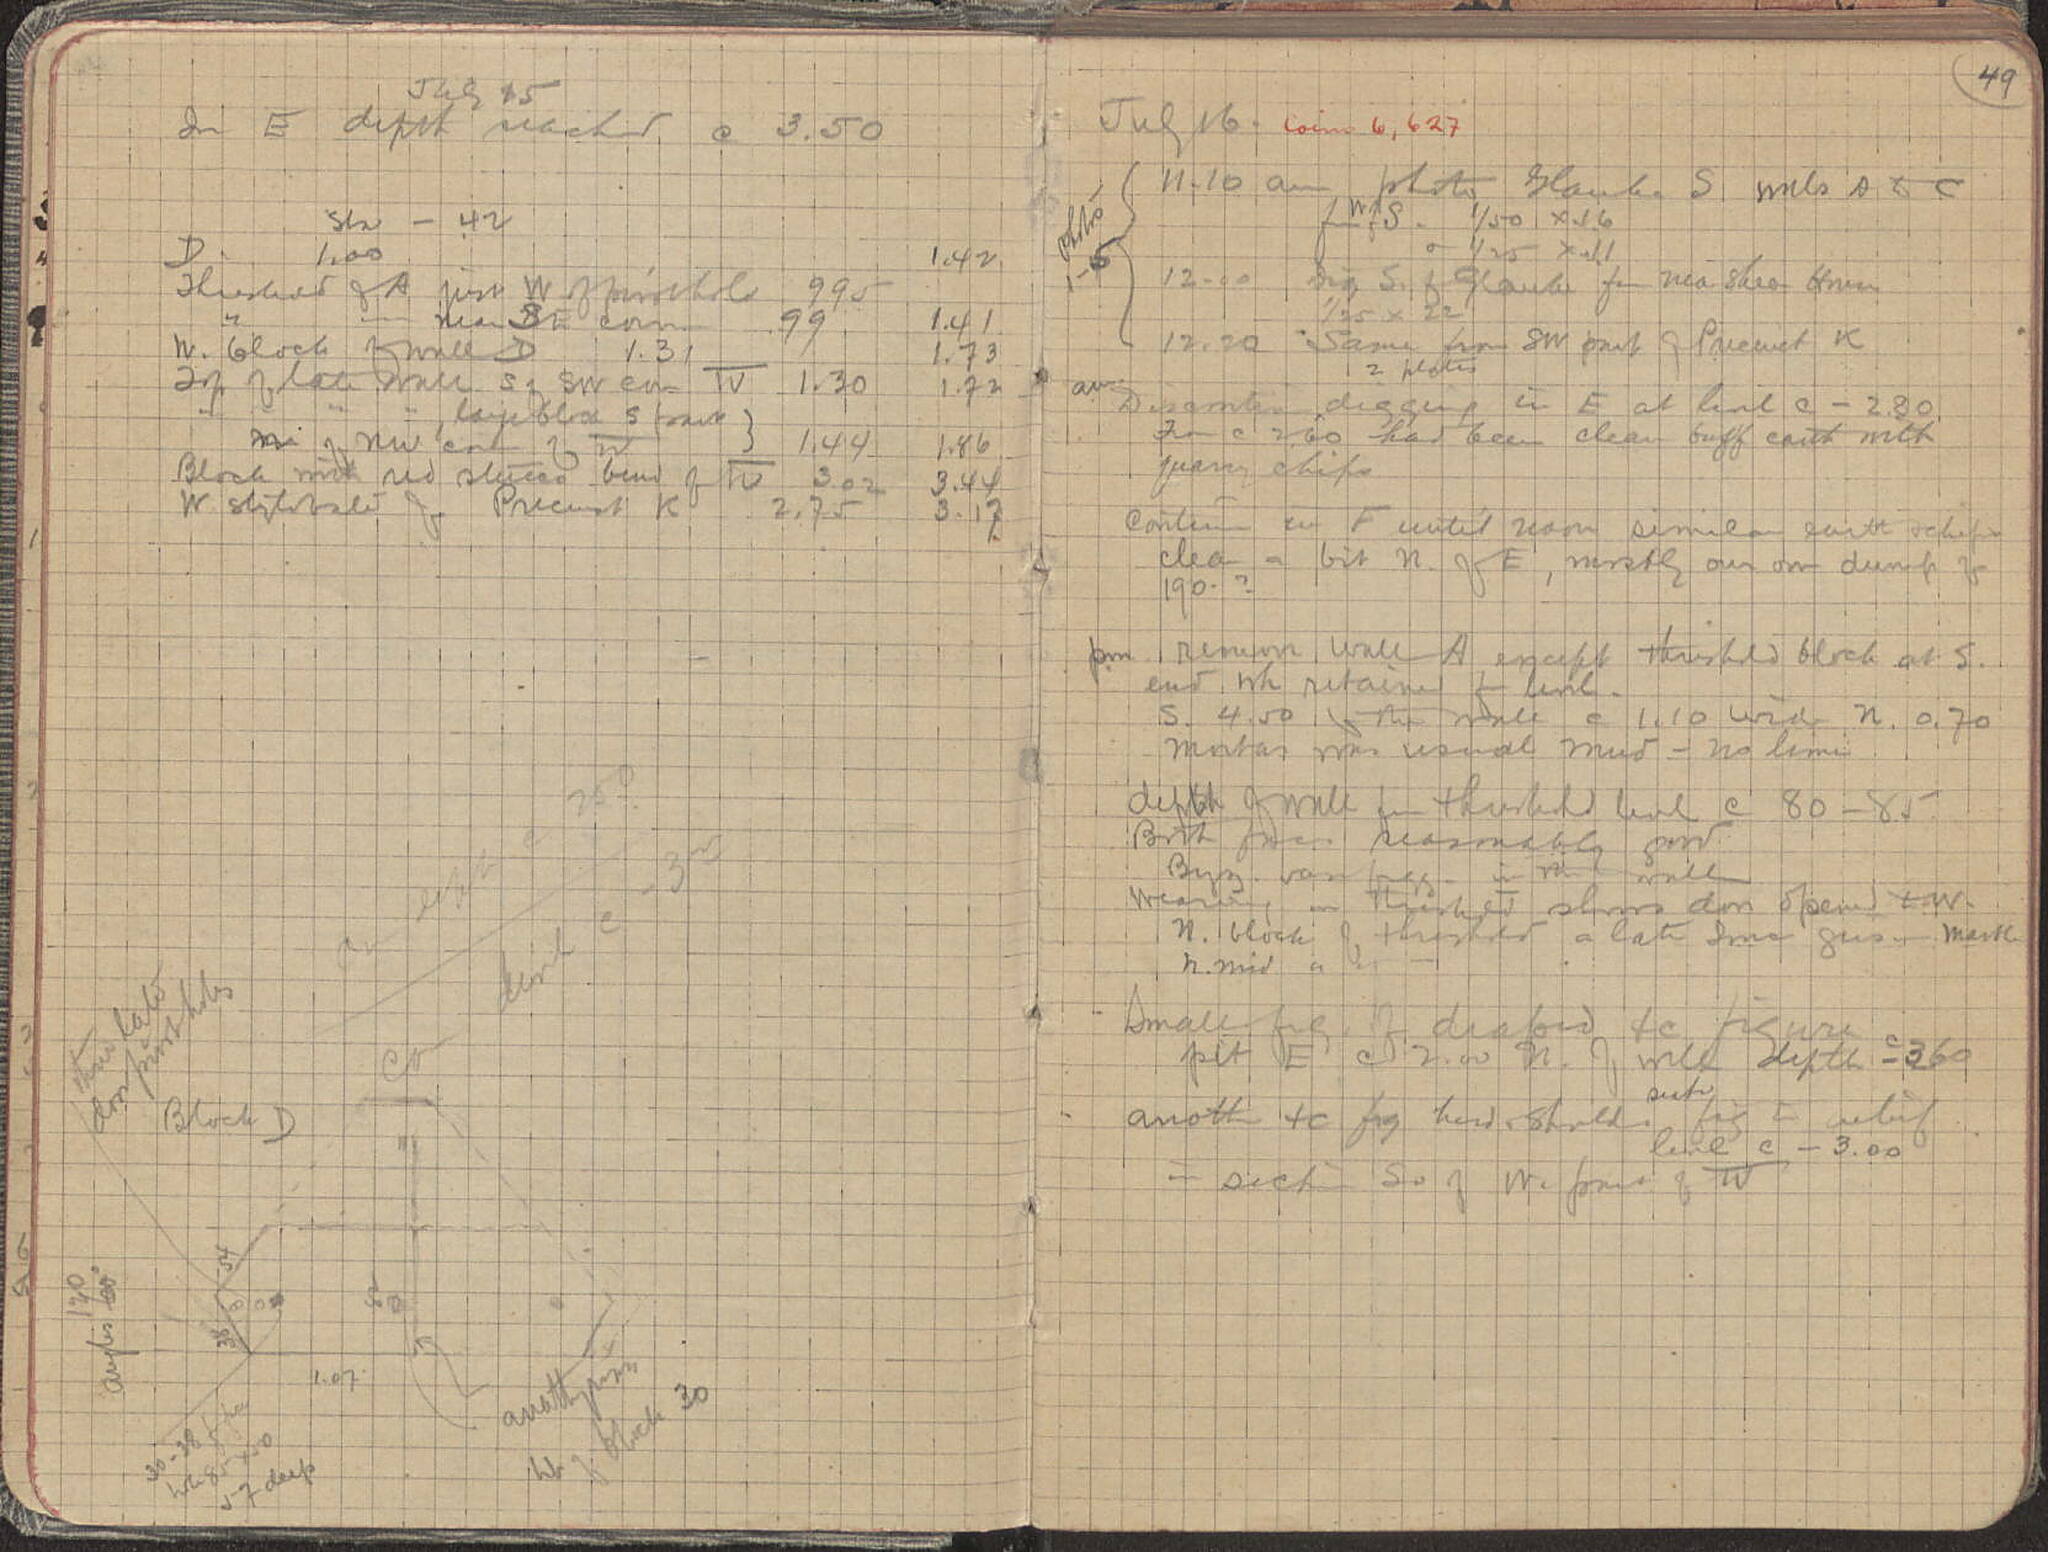 July 15
In E depth reached c 3.50
Sta - 42
D. 1.00 1.42
Threshold of A just W of pivot hole 995
" near SE corn 99 1.41
W. block of wall D 1.31 1.73
Top of late wall S of SW corn IV 1.30 1.72
" " " " , large block S
of NW corn of IV } 1.44 1.86
Block with red stucco bend of IV 3.02 3.44
W stylobate of Precinct K 2.75 3.17
c 250
level c - 3
two late
door pivot holes
Block D
54
38
angles 120
1.07
anathyrosis
ht of block 30
30-38
5-7 deep
49
July 16. Coins 6, 627
photos
1-5
11.10 am photo Glauke S. walls A to C
1/50 x 16
or 1/25 x 11
12-00 Dig S. of Glauke fr near Shear House
1/25 x 22
12.20 Same from SW part of Precinct K
2 photos
am
Discontinue digging in E at level c - 2.80.
From c 260 had been clean buff earth with
quarry chips
Continue in F until noon similar earth & chips
clear a bit N. of E, mostly our own dump of
190-?
pm remove wall A except threshold block at S.
end wh retained for level.
S. 4.50 of the wall c 1.10 wide N. 0.70
Mortar was usual mud - no lime
depth of wall fr threshold level c 80-85
Both faces reasonably good
Byz. vase frags in the wall
Wearing on threshold shows door opened to W.
N. block of threshold a late Ionic
Small frg. of draped tc figure
pit E c 2.00 N. of wall depth c -360
another tc frg head & shoulders fig in relief
level c - 3.00
in section So of W. part of IV